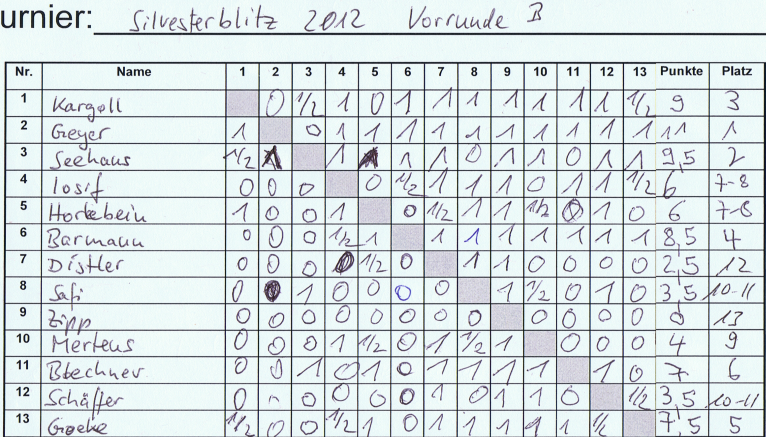 urnier: Silvesterblitz 2012 Vorrunde B
Nr. Name 1 2 3 4 5 6 7 8 9 10 11 12 13 Punkte Platz
1 Kargoll 0 1/2 1 0 1 1 1 1 1 1 1 1/2 9 3
2 Geyer 1 0 1 1 1 1 1 1 1 1 1 1 11 1
3 Seehaus 1/2 1 1 1 1 1 0 1 1 0 1 1 9,5 2
4 Iosif 0 0 0 0 1/2 1 1 1 0 1 1 1/2 6 7-8
5 Hortebein 1 0 0 1 0 1/2 1 1 1/2 0 1 0 6 7-8
6 Barmann 0 0 0 1/2 1 1 1 1 1 1 1 1 8,5 4
7 Distler 0 0 0 0 1/2 0 1 1 0 0 0 0 2,5 12
8 Safi 0 0 1 0 0 0 0 1 1/2 0 1 0 3,5 10-11
9 Zipp 0 0 0 0 0 0 0 0 0 0 0 0 0 13
10 Mertens 0 0 0 1 1/2 0 1 1/2 1 0 0 0 4 9
11 0 0 1 0 1 0 1 1 1 1 1 0 7 6
12 Schäffer 0 0 0 0 0 0 1 0 1 1 0 1/2 3,5 10-11
13 1/2 0 0 1/2 1 0 1 1 1 1 1 1/2 7,5 5